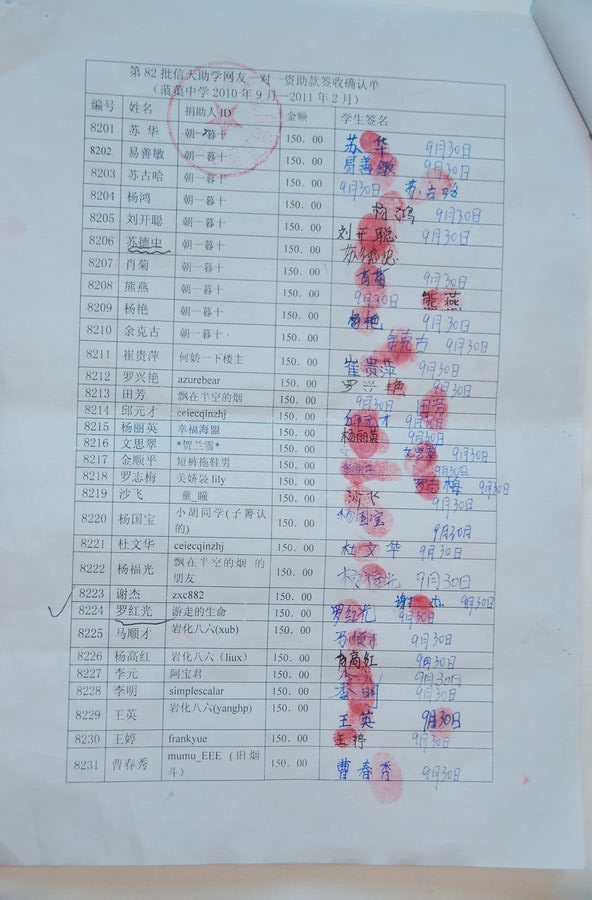 第82批信天助学网友一对一资助款签收确认单
(蒗蕖中学2010年9月—2011年2月)
编号 姓名 捐助人ID 金额 学生签名
8201 苏华 朝一暮十 150.00 苏华 9月30日
8202 易善敏 朝一暮十 150.00 易善敏 9月30日
8203 苏古哈 朝一暮十 150.00 9月30日 苏古哈
8204 杨鸿 朝一暮十 150.00 杨鸿 9月30日
8205 刘开聪 朝一暮十 150.00 刘开聪 9月30日
8206 苏德中 朝一暮十 150.00
8207 肖菊 朝一暮十 150.00 肖菊 9月30日
8208 熊燕 朝一暮十 150.00 9月30日 熊燕
8209 杨艳 朝一暮十 150.00 杨艳 9月30日
8210 余克古 朝一暮十 150.00 余克古 9月30日
8211 崔贵萍 何妨一下楼主 150.00 崔贵萍 9月30日
8212 罗兴艳 azurebear 150.00 罗兴艳 9月30日
8213 田芳 飘在半空的烟 150.00 9月30日 田芳
8214 邱元才 ceiecqinzhj 150.00 邱元才 9月30日
8215 杨丽英 幸福海盟 150.00 杨丽英 9月30日
8216 文思翠 *贺兰雪* 150.00 文思翠 9月30日
8217 金顺平 短裤拖鞋男 150.00 9月30日
8218 罗志梅 美娇袅lily 150.00 罗志梅 9月30日
8219 沙飞 童_瞳 150.00 沙飞 9月30日
8220 杨国宝 小胡同学(子箐认的) 150.00 杨国宝 9月30日
8221 杜文华 ceiecqinzhj 150.00 杜文华 9月30日
8222 杨福光 飘在半空的烟的朋友 150.00 杨福光 9月30日
8223 谢杰 zxc882 150.00 谢杰 9月30日
8224 罗红光 游走的生命 150.00 罗红光 9月30日
8225 马顺才 岩化八六(xub) 150.00 马顺才 9月30日
8226 杨高红 岩化八六(liux) 150.00 肖高红 9月30日
8227 李元 阿宝君 150.00 9月30日
8228 李明 simplescalar 150.00 李明 9月30日
8229 王英 岩化八六(yanghp) 150.00 王英 9月30日
8230 王婷 frankyue 150.00 王婷 9月30日
8231 曹春秀 mumu_EEE(旧烟斗) 150.00 曹春秀 9月30日